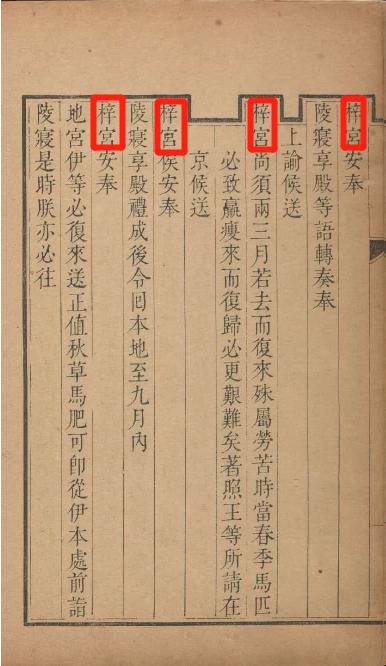 梓宮安奉
陵寢享殿等語轉奏奉
上諭候送
梓宮尚須兩三月若去而復來殊屬勞苦時當春季馬匹
必致羸瘦來而復歸必更艱難矣著照王等所請在
京候送
梓宮俟安奉
陵寢享殿禮成後令囘本地至九月內
梓宮安奉
地宮伊等必復來送正值秋草馬肥可卽從伊本處前詣
陵寢是時朕亦必往